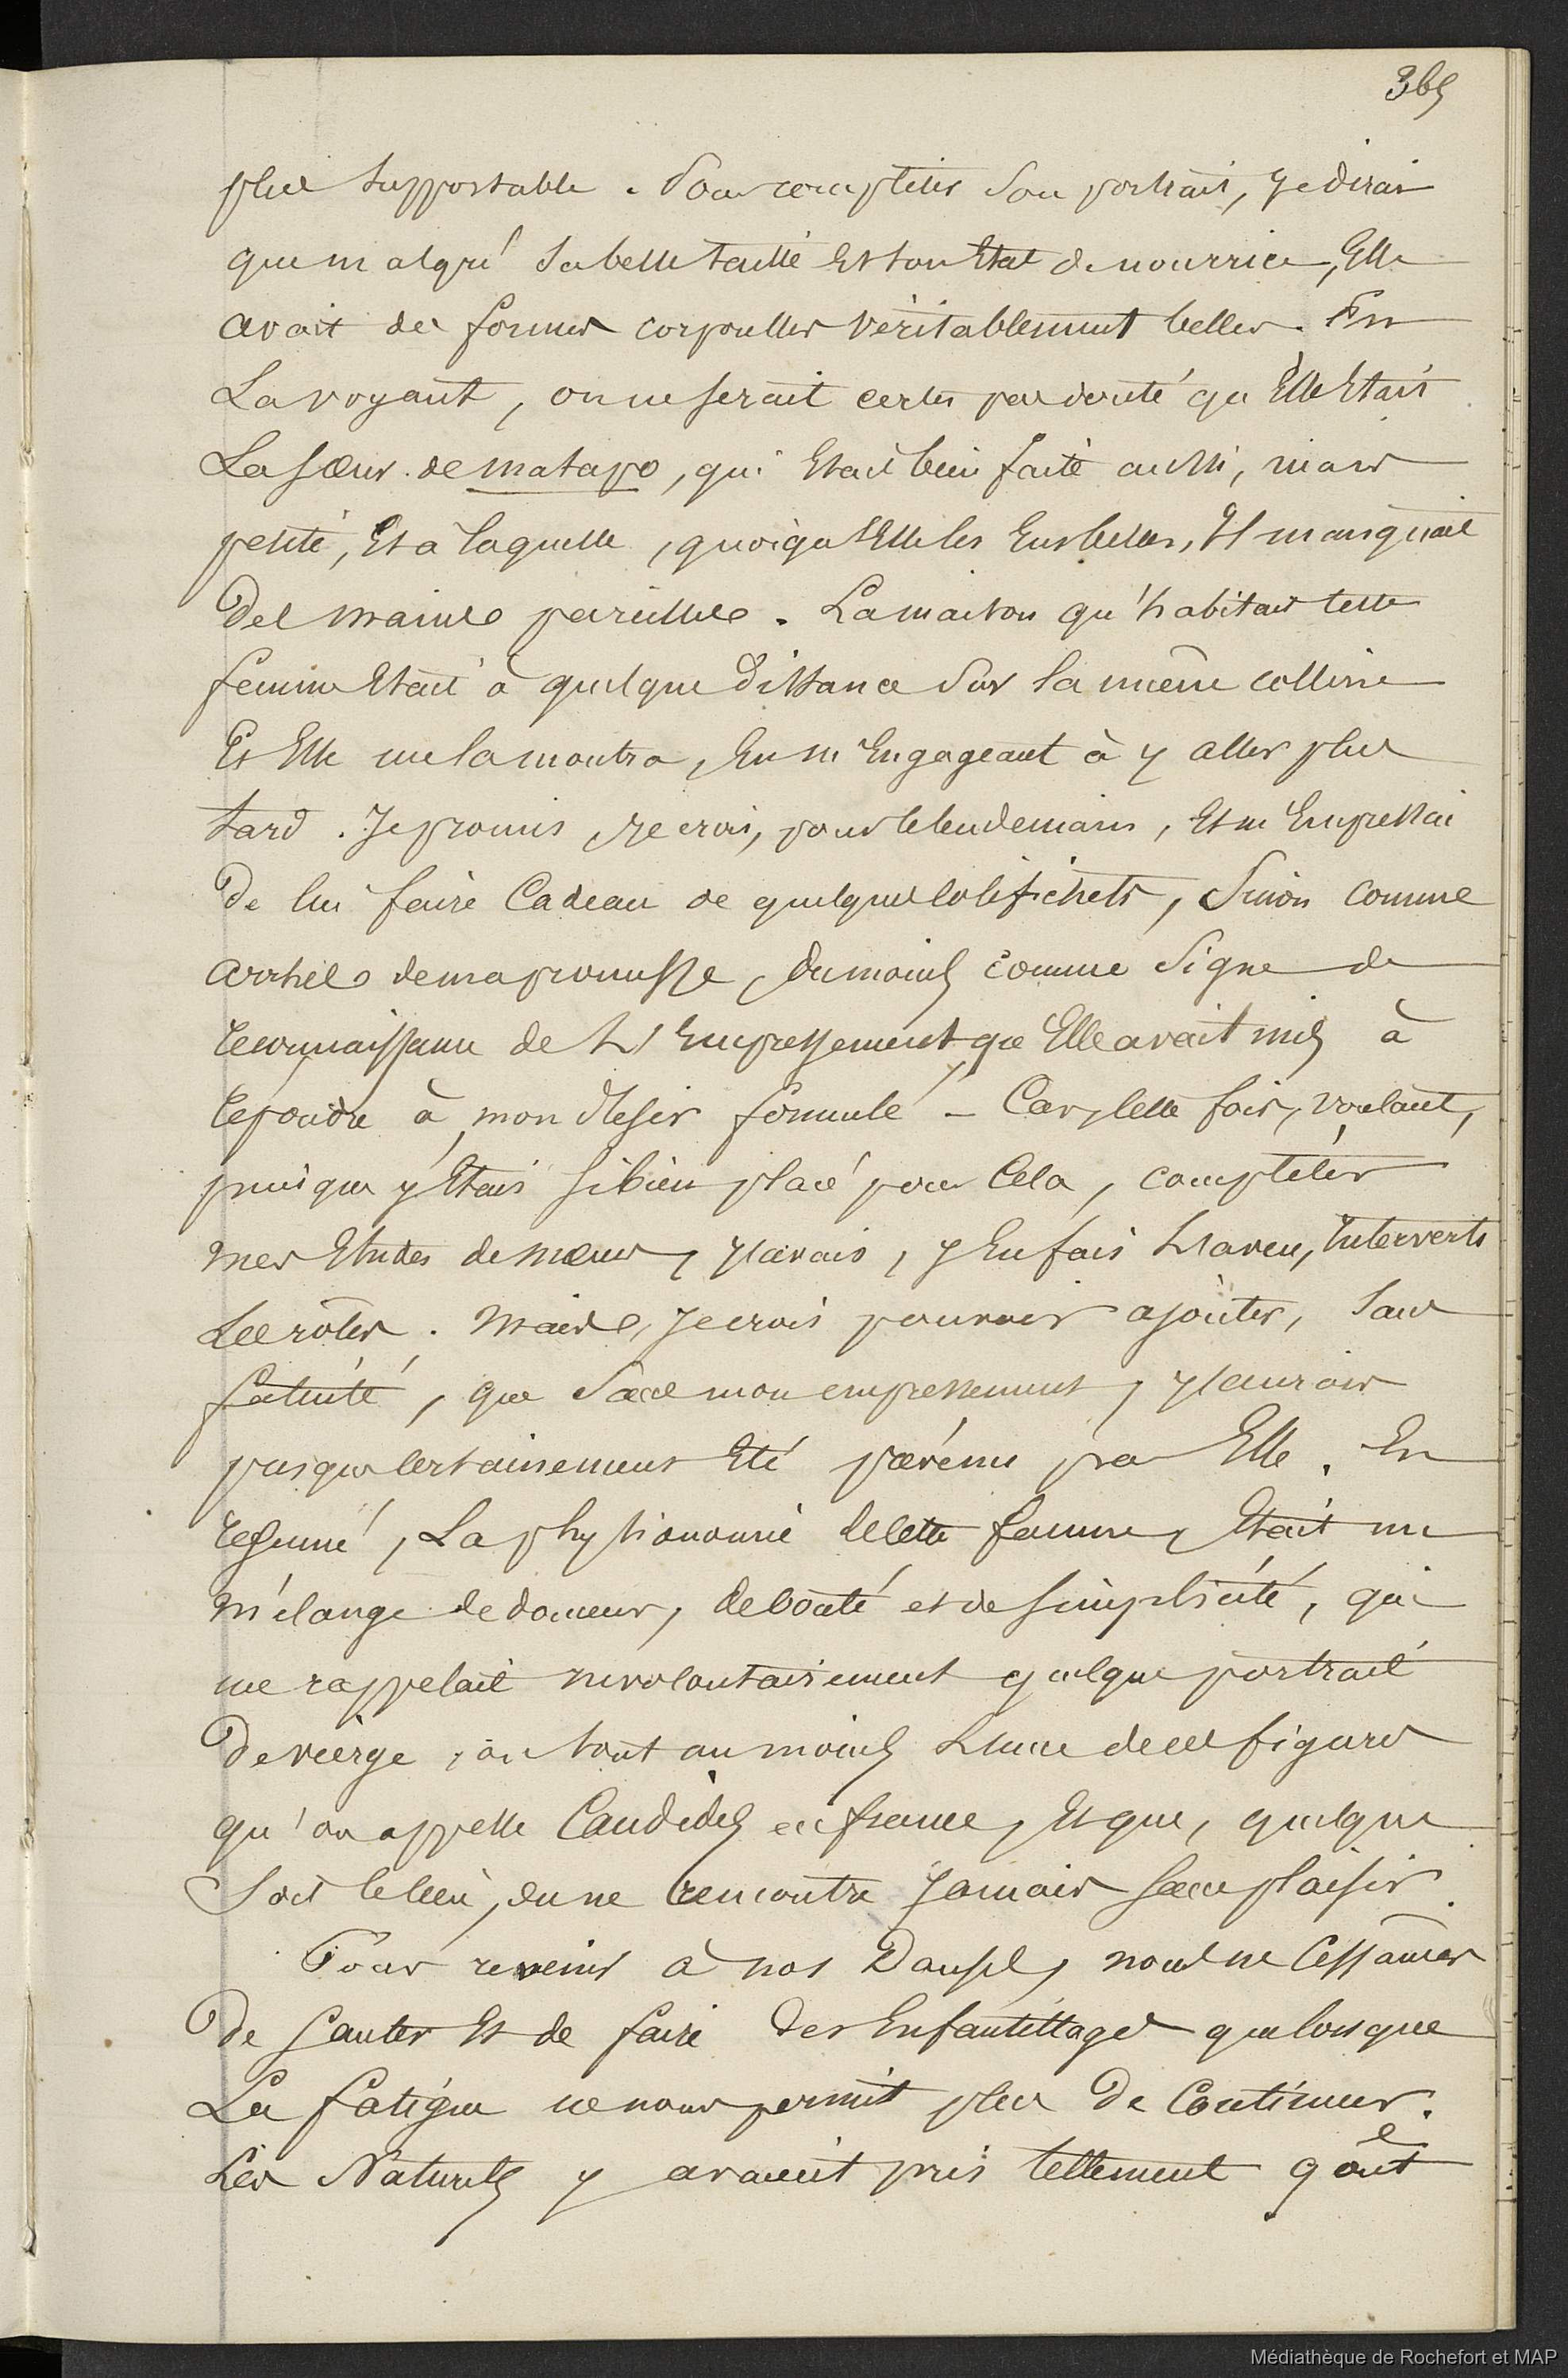 365
plus supportable. Pour completer son portrait, je dirai
que malgré sa belle taille et son Etat de nourrice, Elle
avait des formes corporelles véritablement belles. En
La voyant, on ne serait certes pas douté qu'Elle Etait
La soeur de matapo, qui Etait bien faite aussi, mais
petite, Et à laquelle, quoiqu'Elle les Eut belles, Il manquait
Des mains pareilles. La maison qu'habitait cette
femme Etait à quelque distance sur la même colline
Et Elle me la montra, En m'Engageant à y aller plus
tard. Je promis, je crois, pour le lendemain, Et m'Empressai
De lui faire Cadeau de quelques colifichets, Sinon comme
arrhes de ma promesse, du moins comme Signe de
reconnaissance de L'Empressement que Elle avait mis à
repondre à mon desir formulé - Car, cette fois, voulant,
puisque j'Etais si bien placé pour Cela, completer
mes Etudes de moeurs, j'avais, j'En fais L'aveu, Interverti
Les rôles. Mais, je crois pouvoir ajouter, sans
fatuité, que sans mon empressement, j'aurais
presque certainement Eté prévenu par Elle. En
résumé, La physionomie de cette femme, Etait un
mélange de douceur, de bonté et de simplicité, qui
me rappelait involontairement quelque portrait
De vierge, ou tout au moins L'une de ces figures
qu'on appelle Candides en france, Et que, quelque
Soit le lieu, on ne rencontre Jamais sans plaisir.
Pour revenir à nos Danses, nous ne Cessâmes
De sauter Et de faire des Enfantillages que lorsque
La fatigue ne nous permit plus De Continuer.
Les Naturels y avaient pris tellement goût
Médiathèque de Rochefort et MAP